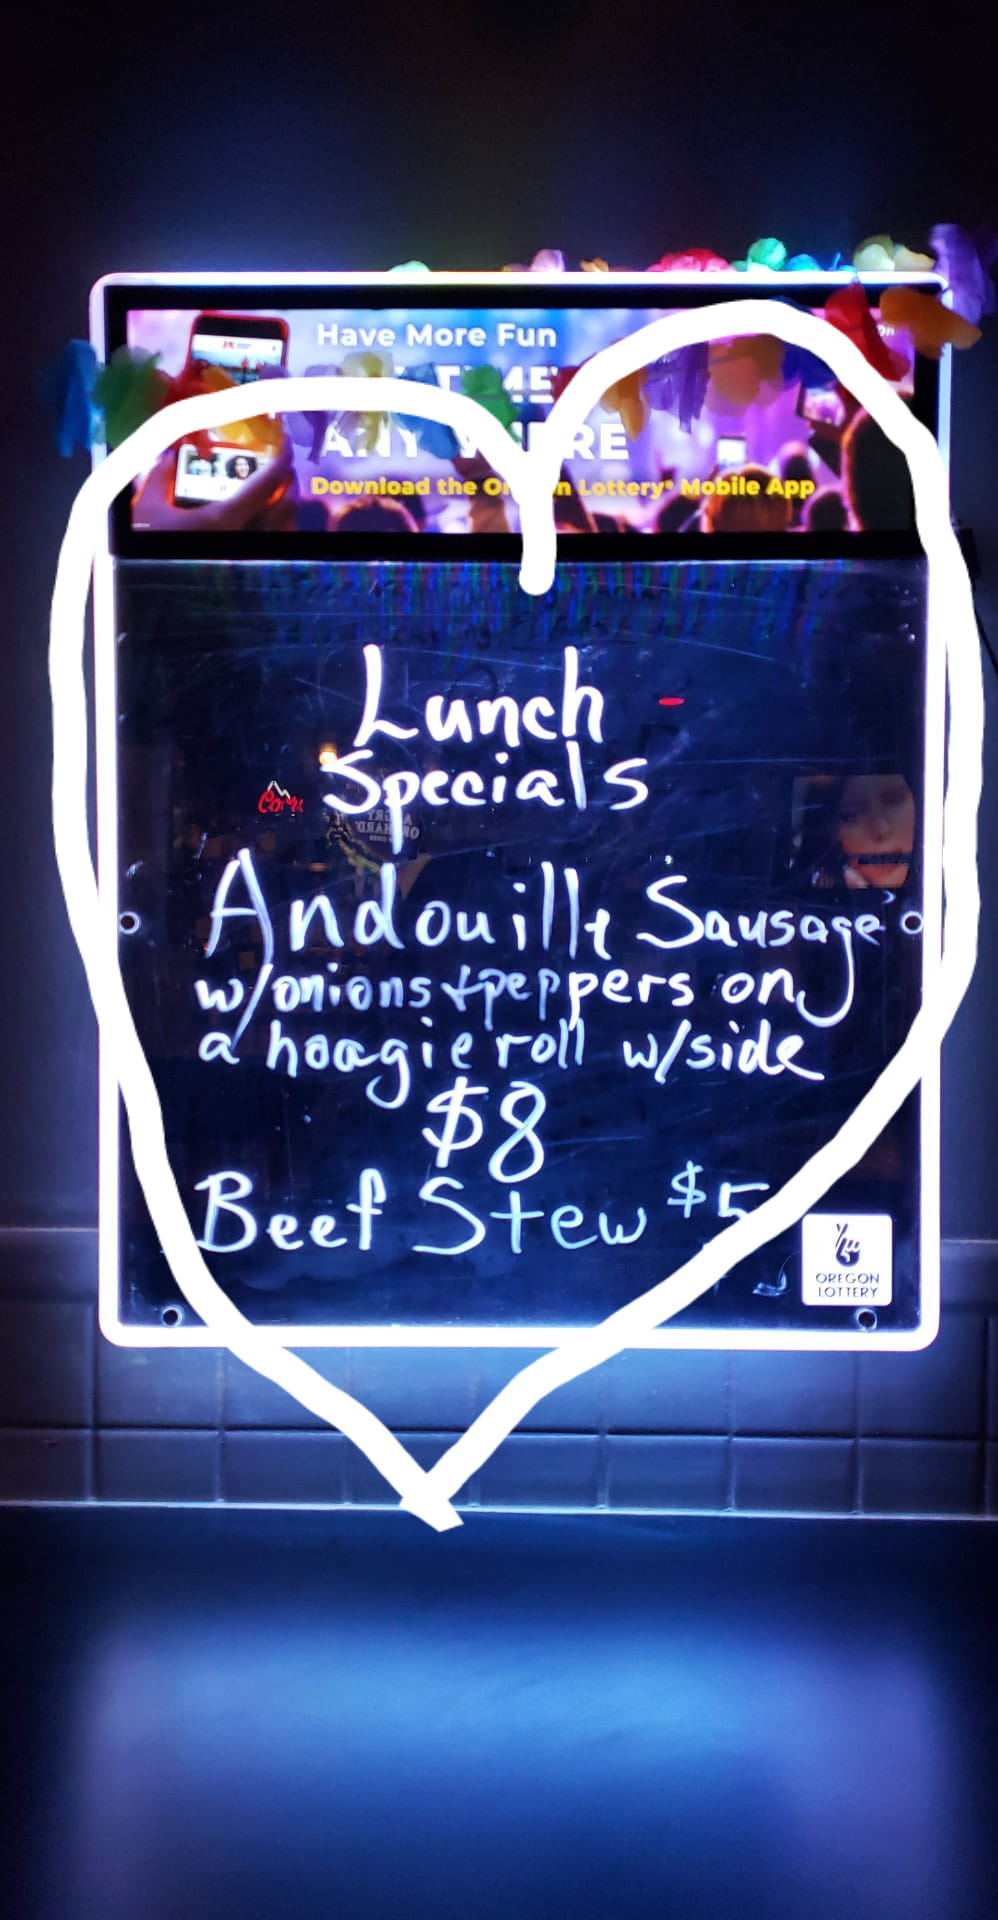 Have More Fun
Download the Oregon Lottery® Mobile App
Lunch
Specials
Andouille Sausage
w/onions + peppers on
a hoagie roll w/side
$8
Beef Stew $5
OREGON
LOTTERY